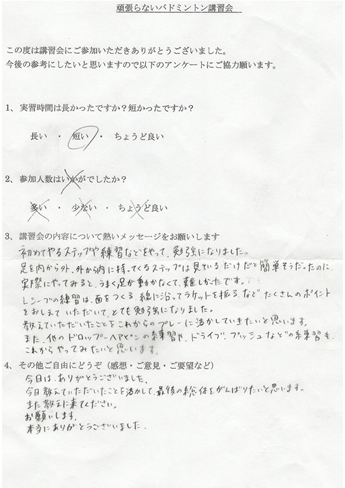 頑張らないバドミントン講習会
この度は講習会にご参加いただきありがとうございました。
今後の参考にしたいと思いますので以下のアンケートにご協力願います。
1、実習時間は長かったですか？短かったですか？
長い ・ 短い ・ ちょうど良い
2、参加人数はいかがでしたか？
多い ・ 少ない ・ ちょうど良い
3、講習会の内容について熱いメッセージをお願いします
初めてやるステップや練習などをやって、勉強になりました。
足を内から外、外から内に持ってくるステップは見ているだけだと簡単そうだったのに
実際にやってみると、うまく足が動かなくて、難しかったです。
レシーブの練習は、面をつくる、線に沿ってラケットを振るなど たくさんのポイント
をおしえていただいて、とても勉強になりました。
教えていただいたことをこれからのプレーに活かしていきたいと思います。
また、他のドロップ、ヘアピンの練習や、ドライブ、プッシュなどの練習も
これからやってみたいと思います。
4、その他ご自由にどうぞ（感想・ご意見・ご要望など）
今日は、ありがとうございました。
今日教えていただいたことを活かして、最後の総体をがんばりたいと思います。
また教えに来てください。
お願いします。
本当にありがとうございました。